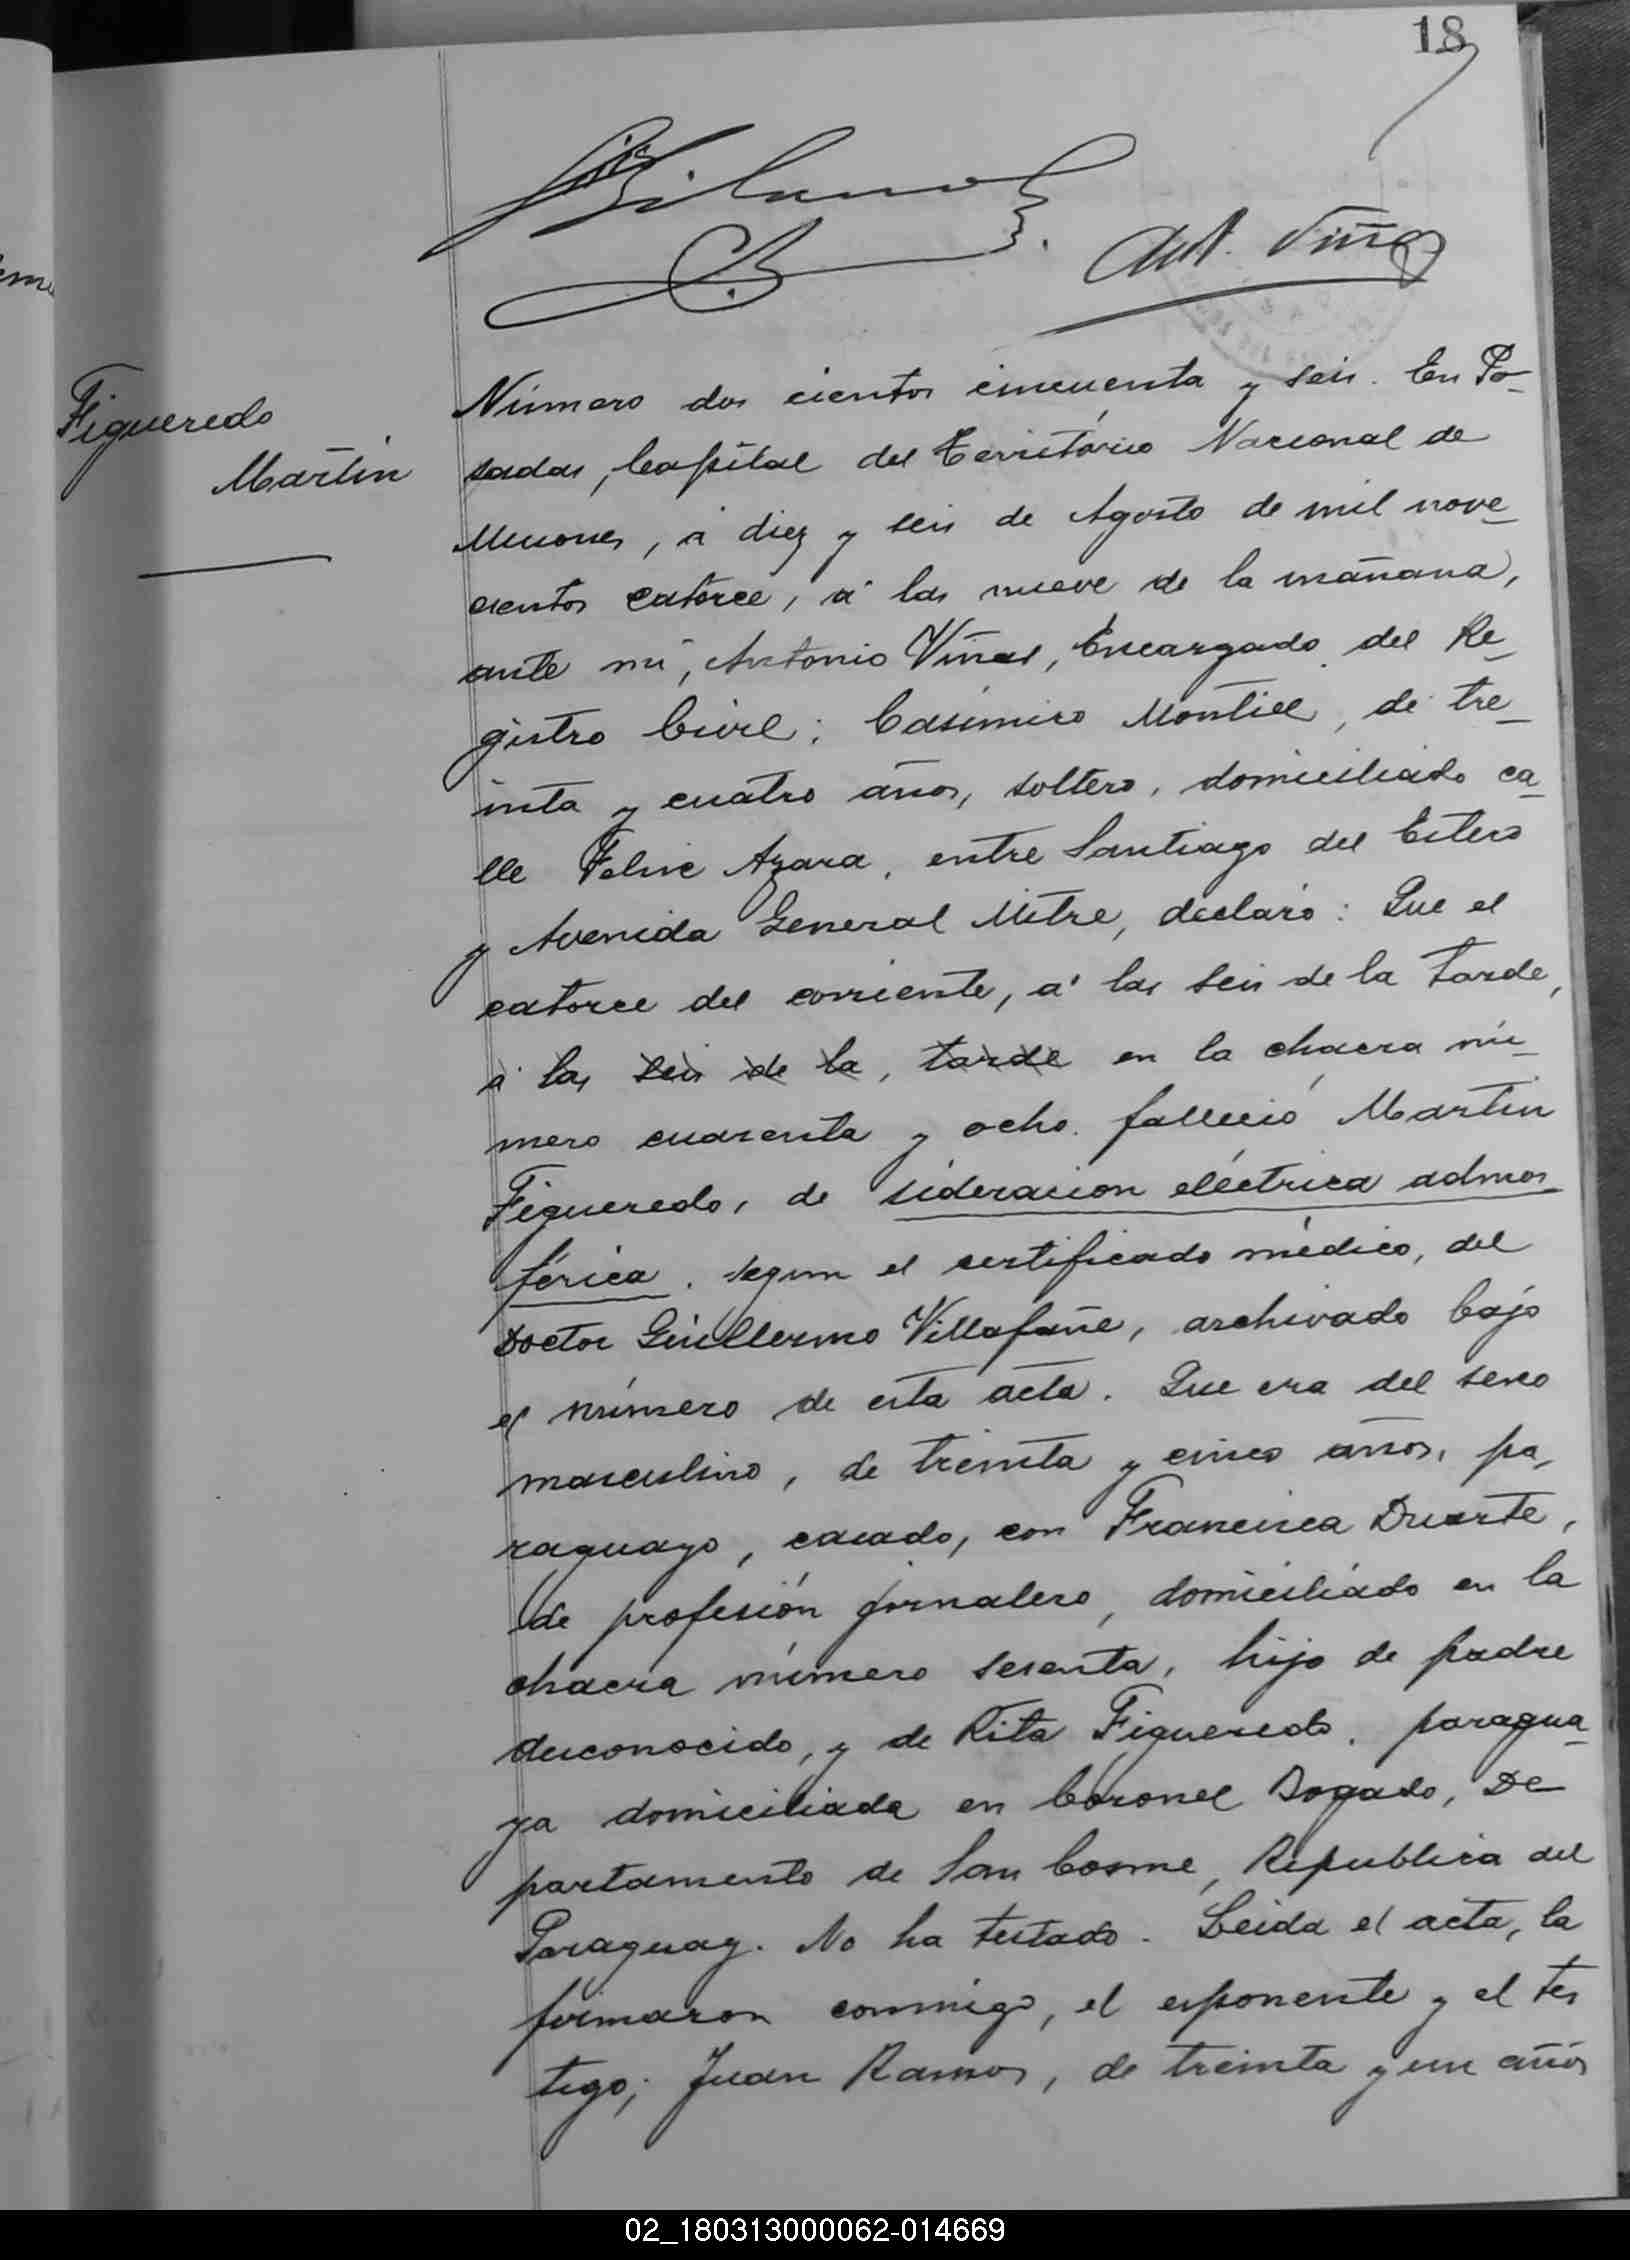 18
Ant. Viñas
Figueredo
Martin
Número dos cientos cincuenta y seis. En Po-
sadas, Capital del Territorio Nacional de
Misiones, á diez y seis de Agosto de mil nove-
cientos catorce, á las nueve de la mañana,
ante mi, Antonio Viñas, Encargado del Re-
gistro Civil; Casimiro Montiel, de tre-
inta y cuatro años, soltero, domiciliado ca-
lle Felix Azara, entre Santiago del Estero
y Avenida General Mitre, declaró: Que el
catorce del corriente, á las seis de la tarde,
á las seis de la, tarde en la chacra nú-
mero cuarenta y ocho falleció Martin
Figueredo, de sideracion eléctrica admos
férica. segun el certificado médico, del
Doctor Guillermo Villafañe, archivado bajo
el número de esta acta. Que era del sexo
masculino, de treinta y cinco años, pa-
raguayo, casado, con Francisca Duarte,
de profesión jornalero, domiciliado en la
chacra número sesenta, hijo de padre
desconocido, y de Rita Figueredo, paragua-
ya domiciliada en Coronel Bogado, De-
partamento de San Cosme, Republica del
Paraguay. No ha testado. Leida el acta, la
firmaron conmigo, el esponente y el tes
tigo; Juan Ramos, de treinta y un años
02_180313000062-014669